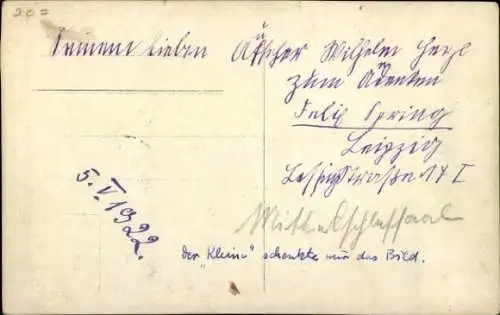 20=
Seinem lieben
Wilhelm
zum
Felix Spring
Leipzig
Lessingstraße 14 I
5. V. 1922.
Mittelschlafsaal
Der „Kleine“ schenkte mir das Bild.